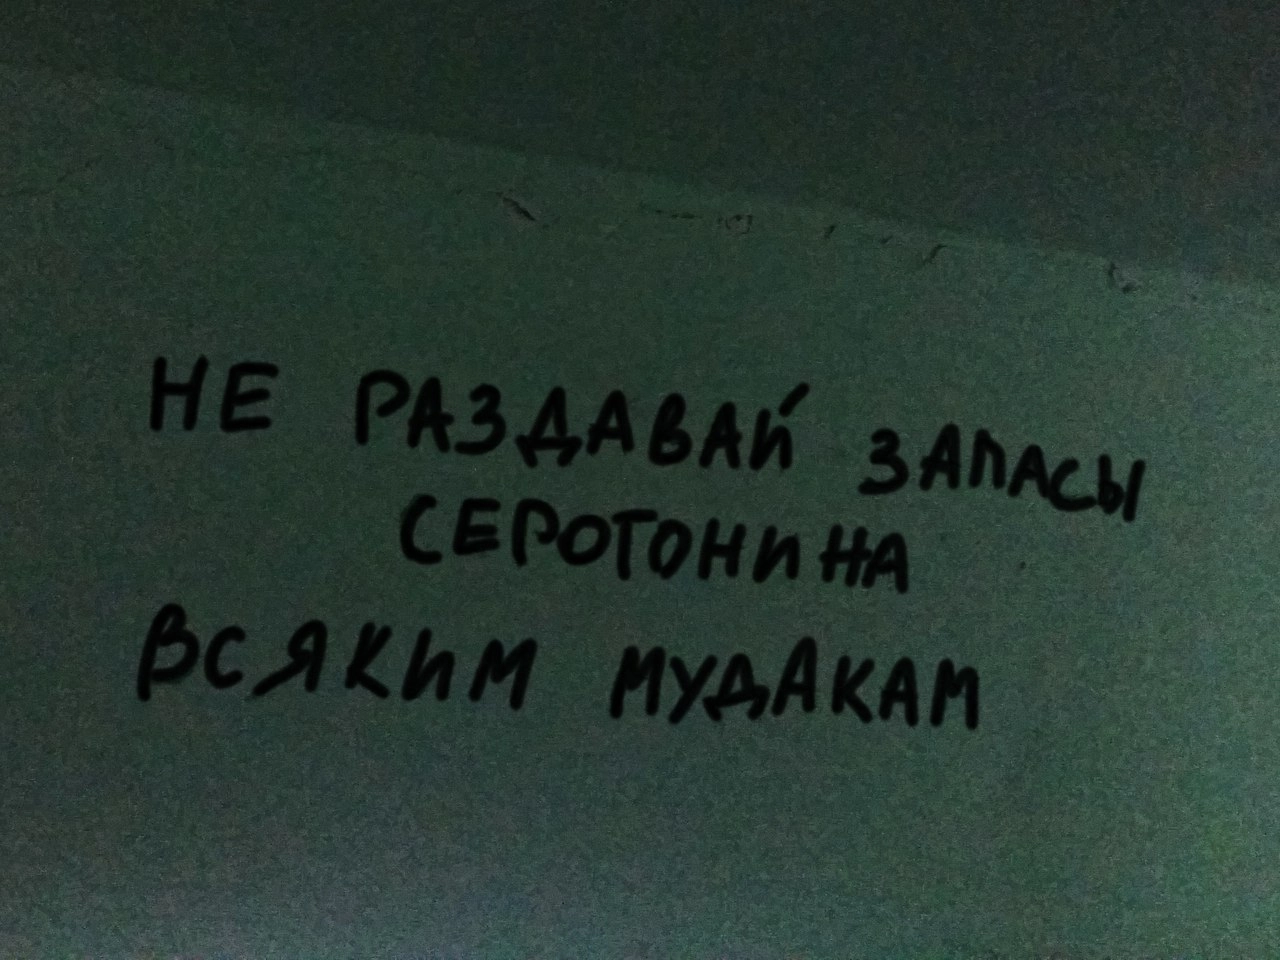 НЕ РАЗДАВАЙ ЗАПАСЫ
СЕРОТОНИНА
ВСЯКИМ МУДАКАМ